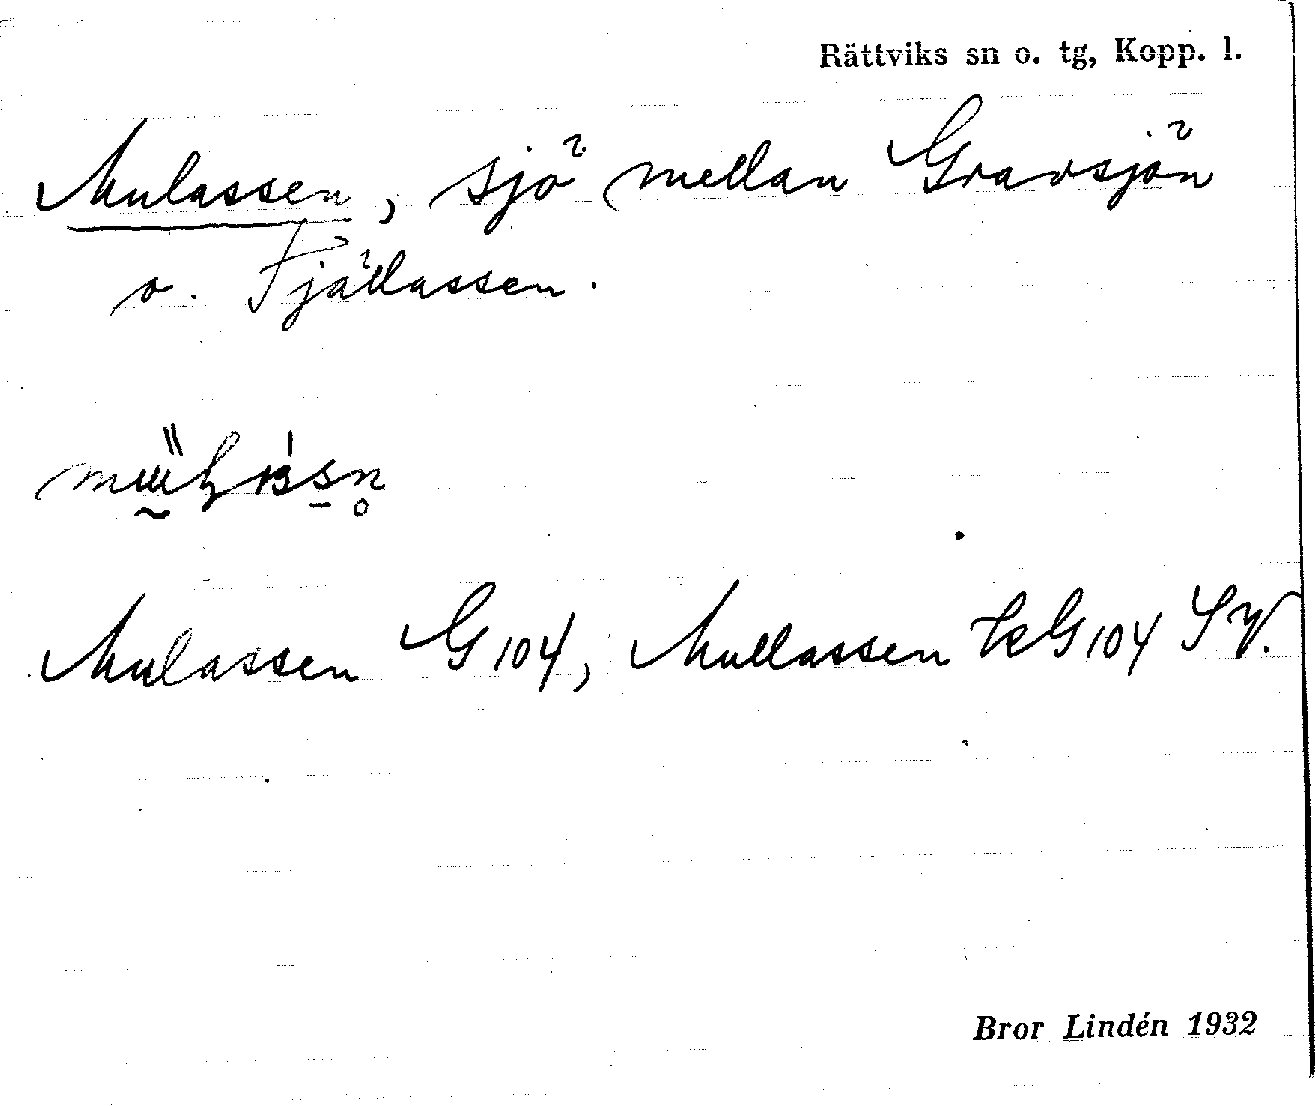 Rättviks sn o. tg, Kopp. l.
Mulassen, sjö mellan Gravsjön
o. Fjällassen.
Mulassen G 104, Mullassen G 104 SV.
Bror Lindén 1932